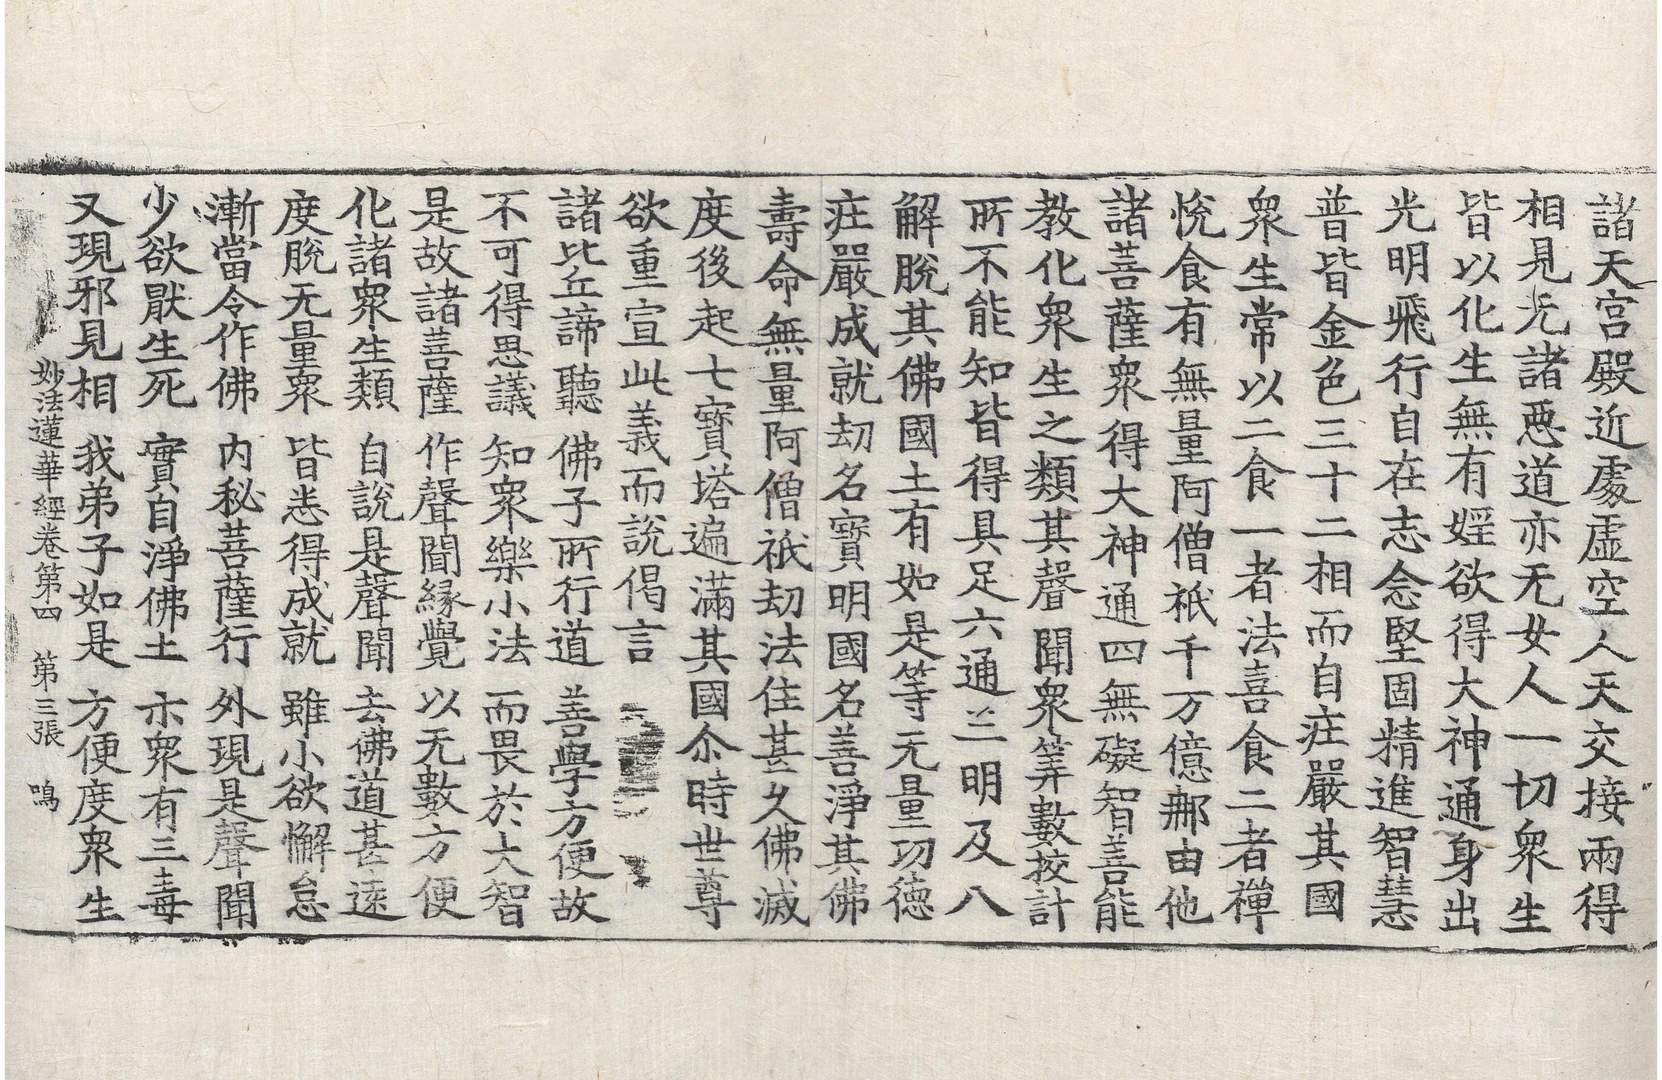 諸天宮殿近處虛空人天交接兩得
相見无諸惡道亦无女人一切衆生
皆以化生無有婬欲得大神通身出
光明飛行自在志念堅固精進智慧
普皆金色三十二相而自庄嚴其國
衆生常以二食一者法喜食二者禪
悅食有無量阿僧祇千万億那由他
諸菩薩衆得大神通四無礙智善能
教化衆生之類其聲聞衆筭數挍計
所不能知皆得具足六通三明及八
解脫其佛國土有如是等无量功德
庄嚴成就劫名寶明國名善淨其佛
壽命無量阿僧祇劫法住甚久佛滅
度後起七寶塔遍滿其國尒時世尊
欲重宣此義而說偈言
諸比丘諦聽 佛子所行道 善學方便故
不可得思議 知衆樂小法 而畏於大智
是故諸菩薩 作聲聞緣覺 以无數方便
化諸衆生類 自說是聲聞 去佛道甚遠
度脫无量衆 皆悉得成就 雖小欲懈怠
漸當令作佛 內秘菩薩行 外現是聲聞
少欲厭生死 實自淨佛土 示衆有三毒
又現邪見相 我弟子如是 方便度衆生
妙法蓮華經卷第四 第三張 鳴